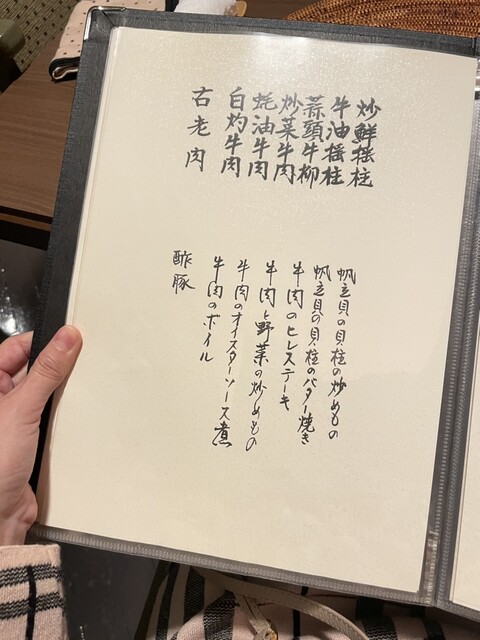 炒鮮揺柱
牛油揺柱
蒜頭牛柳
炒菜牛肉
蚝油牛肉
白灼牛肉
古老肉
帆立貝の貝柱の炒めもの
帆立貝の貝柱のバター焼き
牛肉のヒレステーキ
牛肉と野菜の炒めもの
牛肉のオイスターソース煮
牛肉のボイル
酢豚